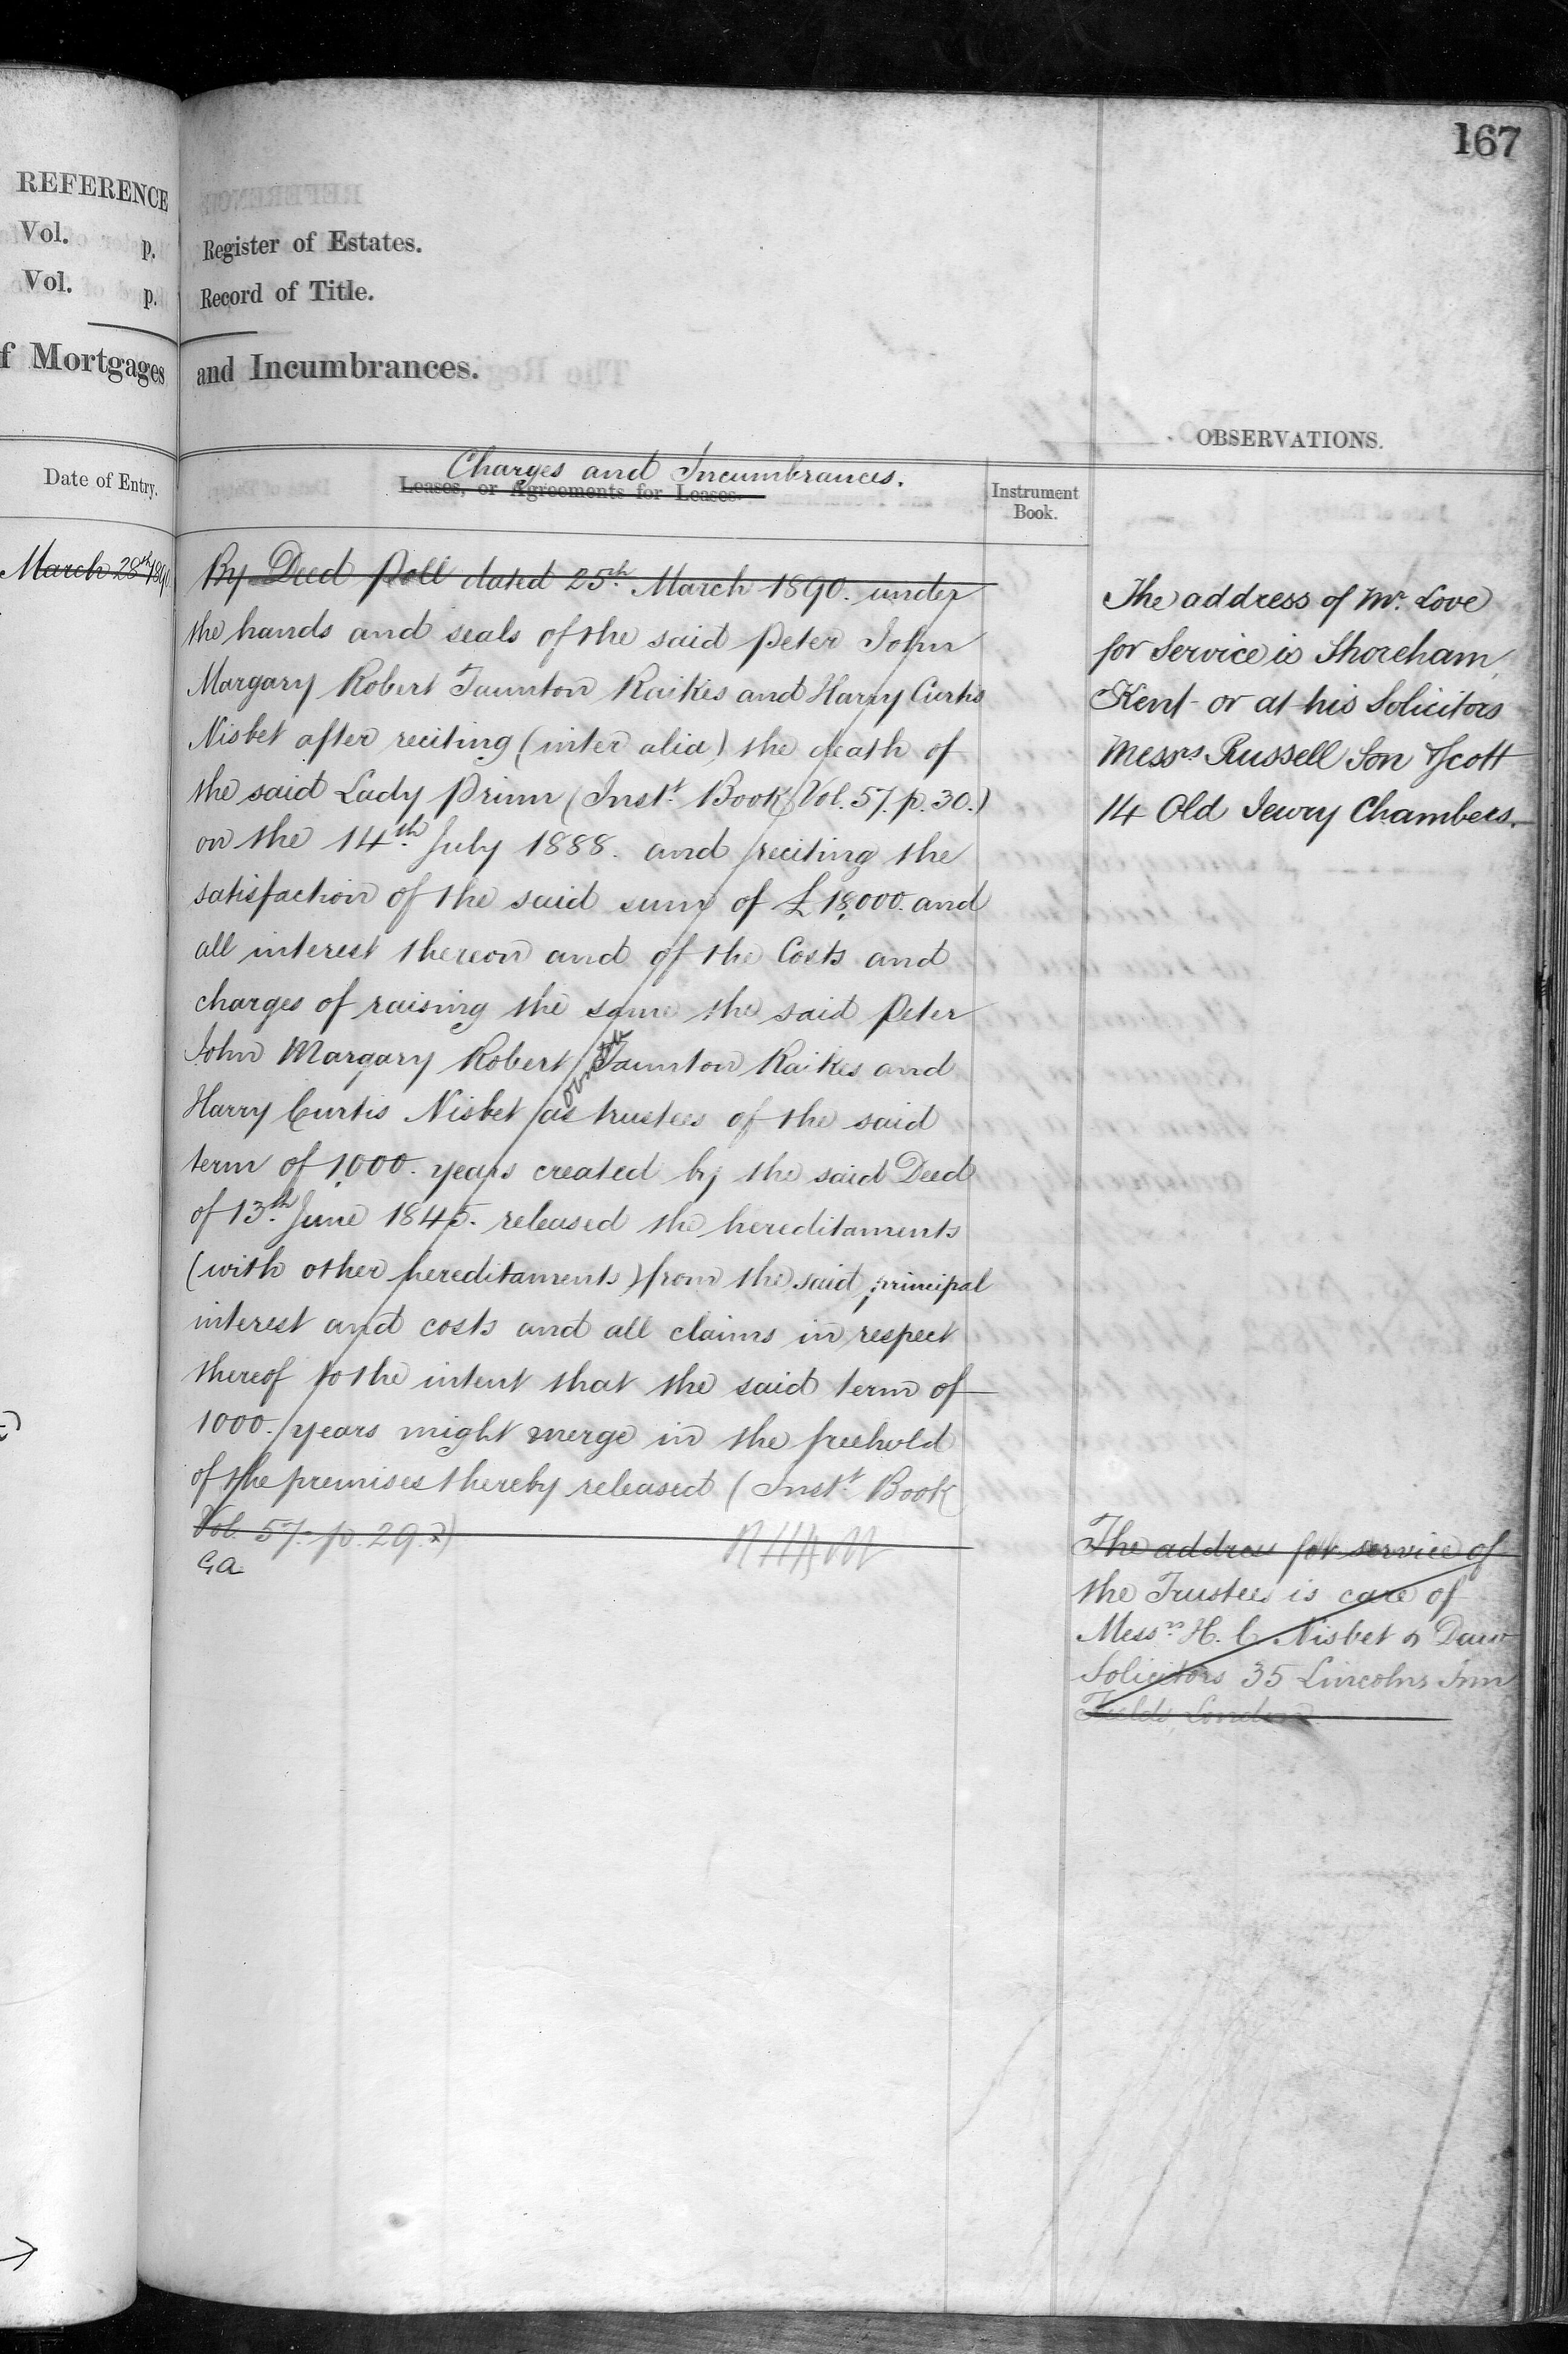 167
REFERENCE
Vol. p.
Vol. p.
f Mortgages
Date of Entry.
March 28th 1890
Register of Estates.
Record of Title.
and Incumbrances.
OBSERVATIONS.
Charges and Incumbrances.
Leases, or Agreements for Leases.
Instrument
Book.
By Deed Poll dated 25th March 1890. under
the hands and seals of the said Peter John
Margary Robert Taunton Raikes and Harry Curtis
Nisbet after reciting (inter alia) the death of
the said Lady Prinn (Instt Book Vol. 57. p. 30.)
on the 14th July 1888. and reciting the
satisfaction of the said sum of £18,000. and
all interest thereon and of the Costs and
charges of raising the same the said Peter
John Margary Robert Taunton Raikes and
Harry Curtis Nisbet as trustees of the said
term of 1,000. years created by the said Deed
of 13th June 1845. released the hereditaments
(with other hereditaments) from the said principal
interest and costs and all claims in respect
thereof to the intent that the said term of
1000. years might merge in the freehold
of the premises thereby released (Instt Book
Vol. 57. p. 29.)
The address of Mr. Love
for Service is Shoreham,
Kent or at his Solicitors
Messrs Russell Son & Scott
14 Old Jewry Chambers.
The address for service of
the Trustees is care of
Messrs H. C. Nisbet & Daw
Solicitors 35 Lincolns Inn
Fields, London